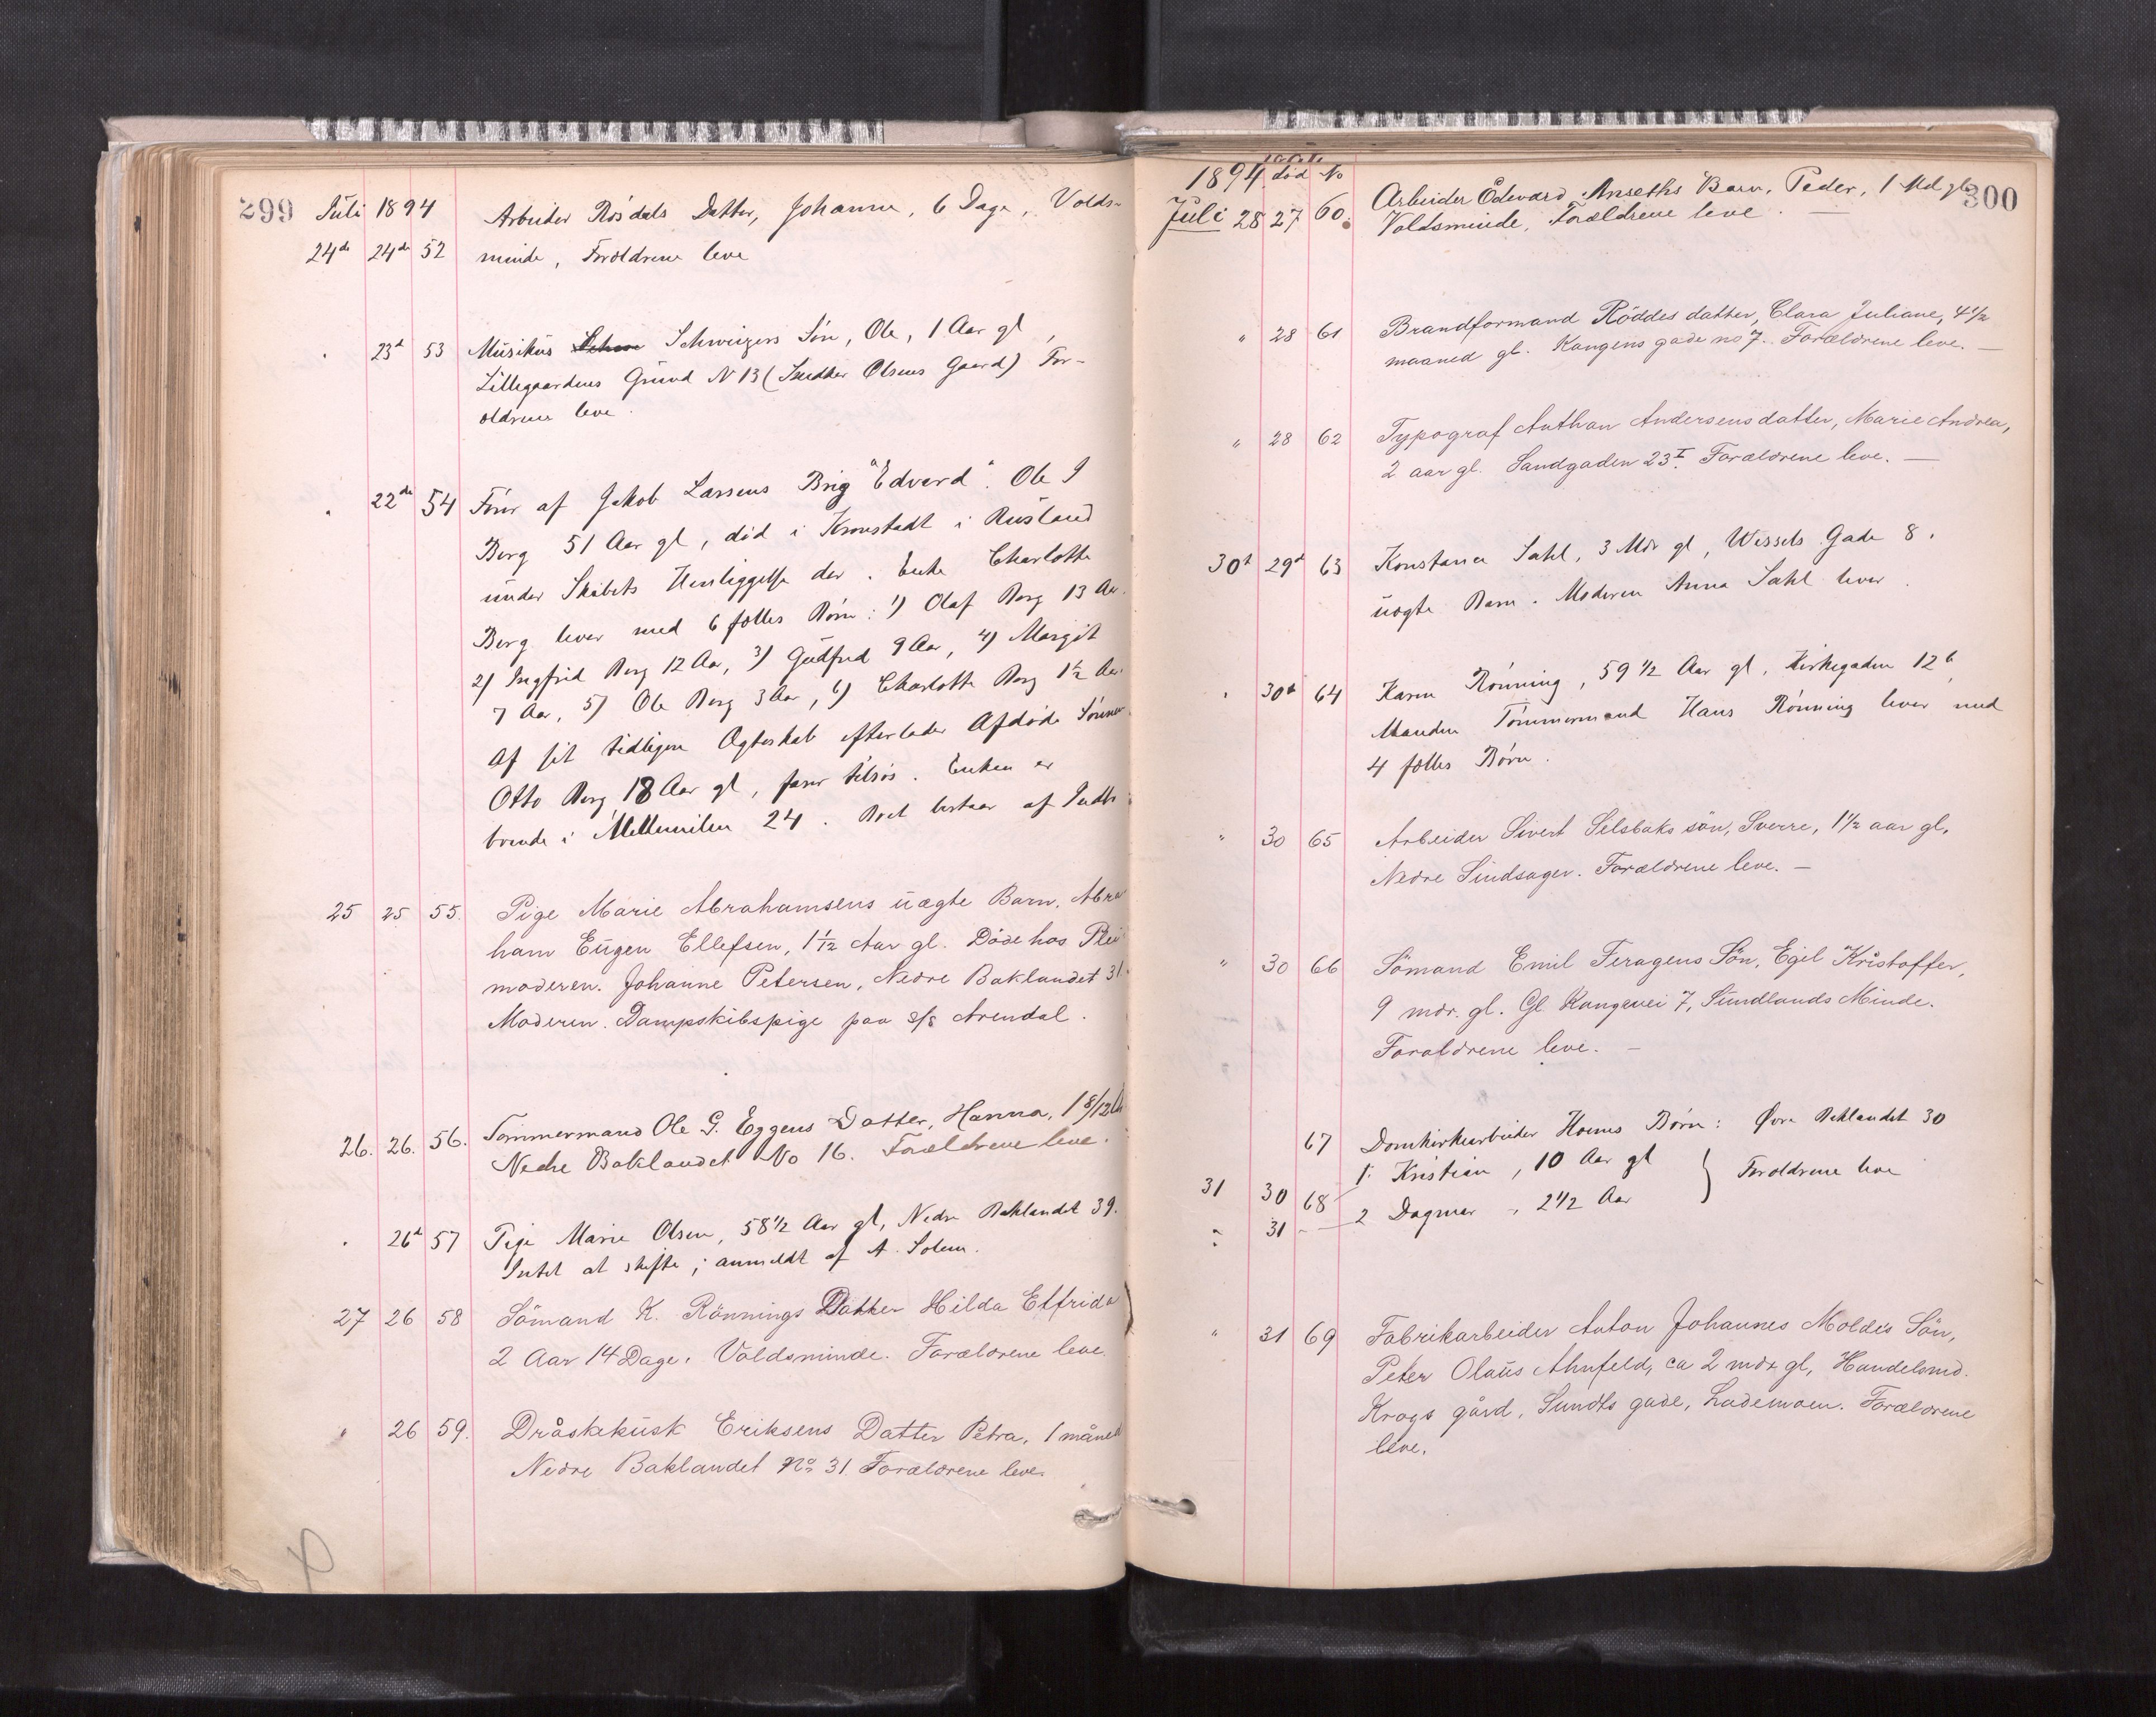 299 Juli 1894
Arbeider Rosdals Datter, Johanne, 6 Dage, Volds-
24de 24de 52 minde, Forældrene leve
23d 53 Musikus Schweizers Søn, Ole, 1 Aar gl,
Lillegaardens Grund N 13 (Snedker Olsens Gaard) For-
ældrene leve.
22de 54 Fører af Jakob Larsens Brig "Edvard". Ole J
Berg 51 Aar gl, død i Kronstadt i Rusland
under Skibets Henliggelse der. Enke Charlotte
Berg lever med 6 fælles Børn: 1) Olaf Berg 13 Aar
2) Ingfrid Berg 12 Aar, 3) Gudfred 9 Aar, 4) Margit
7 Aar, 5) Ole Berg 3 Aar, 6) Charlotte Berg 1½ Aar.
Af sit tidligere Ægteskab efterlader Afdøde Sønnen
Otto Berg 18 Aar gl, farer tilsøs. Enken er
boende i Mellemilen 24. Boet bestaar af Indbo
25 25 55. Pige Marie Abrahamsens uægte Barn, Abra
ham Eugen Ellefsen, 1 1/12 Aar gl. Döde hos Plei
moderen. Johanne Petersen, Nedre Baklandet 31.
Moderen. Dampskibspige paa s/s Arendal.
26. 26. 56. Tömmermand Ole G. Eggens Datter, Hanna, 1 8/12 Aar
Nedre Baklandet No 16. Forældrene leve.
26d 57 Pige Marie Olsen, 58½ Aar gl, Nedre Baklandet 39.
Intet at skifte; anmeldt af A. Solem.
27 26 58 Sömand K. Rönnings Datter Hilda Elfrida
2 Aar 14 Dage. Voldsminde. Forældrene leve.
" 26 59. Dråskekusk Eriksens Datter Petra, 1 måned
Nedre Baklandet No 31. Forældrene leve.
1894 død No
300
Juli 28 27 60. Arbeider Edvard Anseths Barn, Peder, 1 Md gl.
Voldsminde, Forældrene leve. —
" 28 61 Brandformand Röddes datter, Clara Juliane, 4½
maaned gl. Kongens gade no 7. Forældrene leve. —
" 28 62 Typograf Anthon Andersens datter, Marie Andrea,
2 aar gl. Sandgaden 23 I. Forældrene leve. —
30d 29d 63 Konstance Sahl, 3 Mdr gl, Wessels Gade 8.
uægte Barn. Moderen Anna Sahl lever.
" 30d 64 Karen Rønning, 59½ Aar gl, Kirkegaden 12b,
Manden Tømmermand Hans Rønning lever med
4 fælles Børn.
" 30 65 Arbeider Sivert Selsbaks sön, Sverre, 1½ aar gl.
Nedre Sindsager. Forældrene leve. —
" 30 66 Sömand Emil Feragens Sön, Egil Kristoffer,
9 mdr. gl. Gl Kongevei 7, Sundlands Minde.
Forældrene leve. —
67 Domkirkearbeider Hoems Børn: Øvre Baklandet 30
31 30 68 1. Kristian, 10 Aar gl } Forældrene leve
" 31 2 Dagmar, 2½ Aar
" 31 69 Fabrikarbeider Anton Johannes Moldes Sön,
Peter Olaus Ahnfeld, ca 2 mdr gl, Handelsmd.
Krogs gård, Sundts gade, Lademoen. Forældrene
leve.